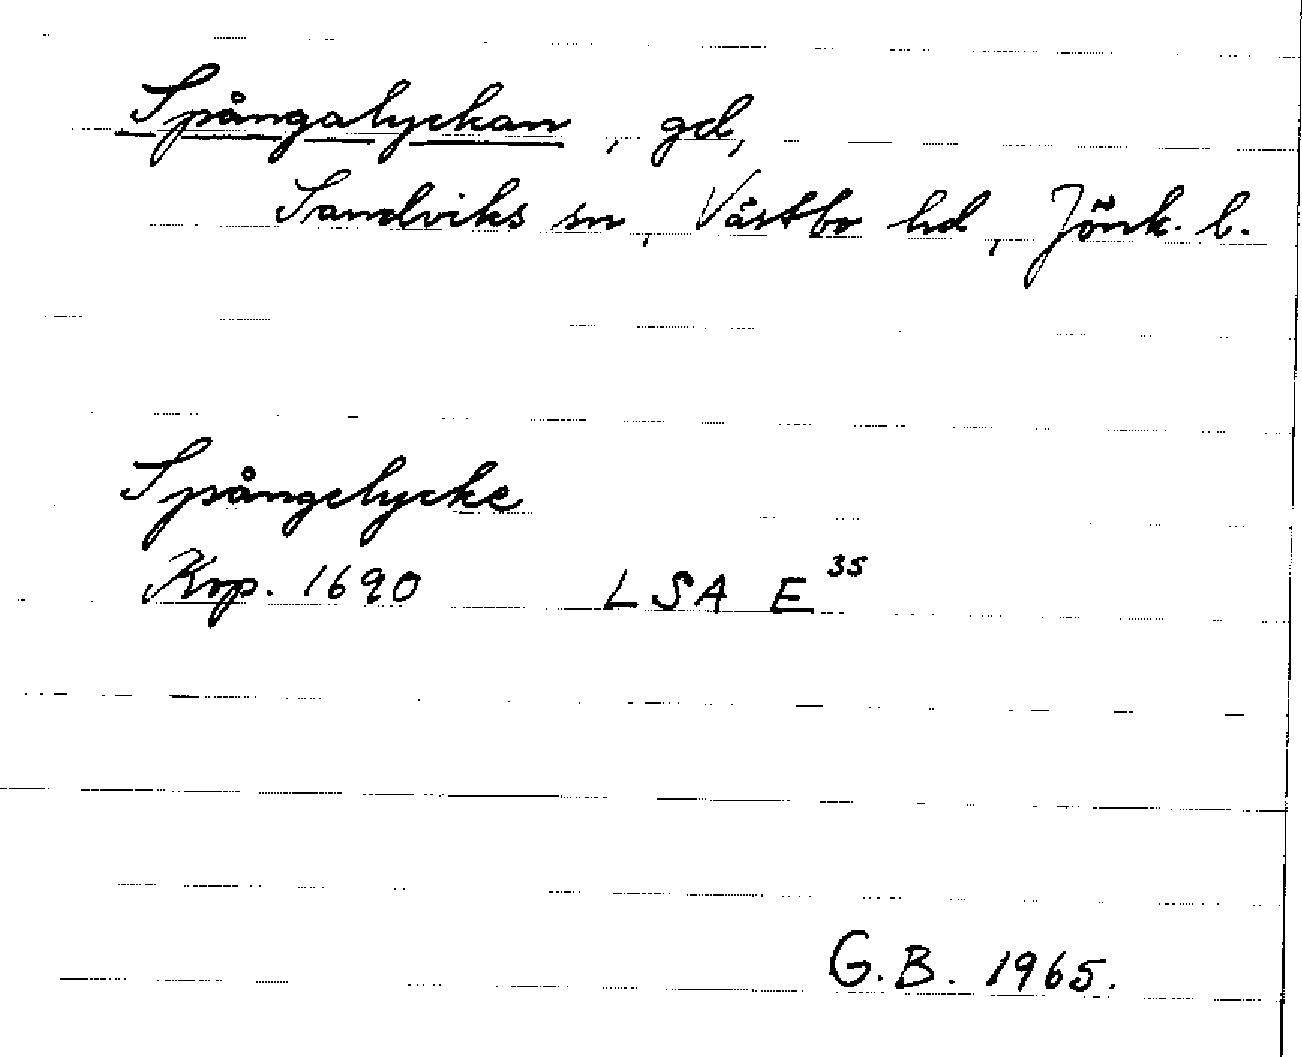 Spångalyckan, gd,
Sandviks sn, Västbo hd, Jönk. l.
Spångelycke
Kop. 1690 LSA E 35
G.B. 1965.